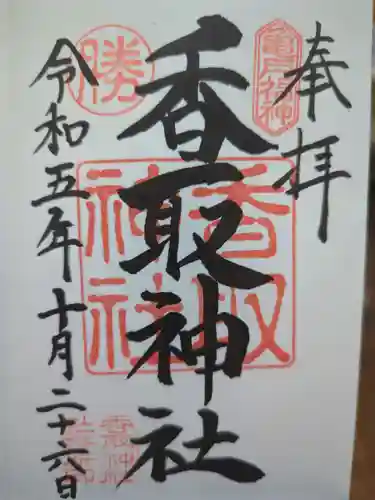 奉拝
亀戸
香取神社
香取神社
勝
令和五年十月二十六日